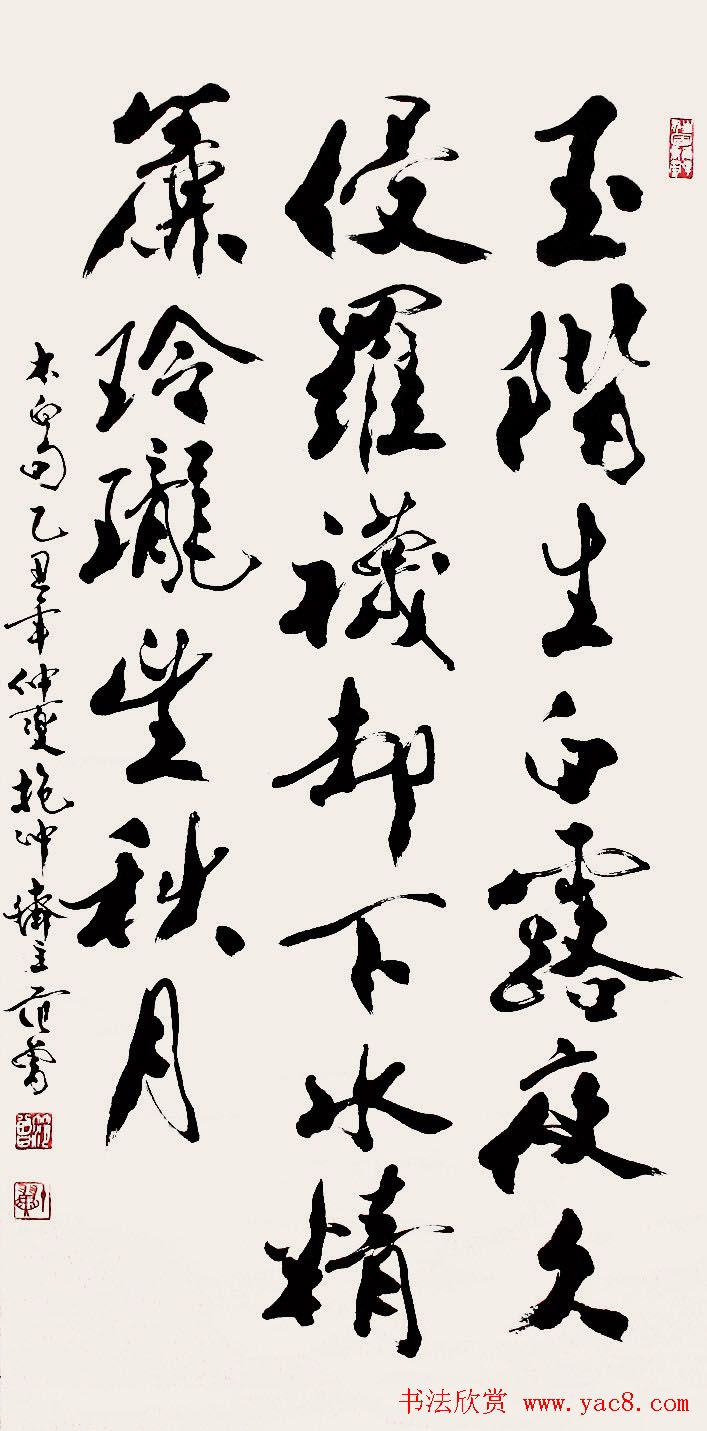 玉階生白露夜久
侵羅襪却下水精
簾玲瓏望秋月
李白句乙丑年仲夏抱沖齋主范曾
书法欣赏 www.yac8.com